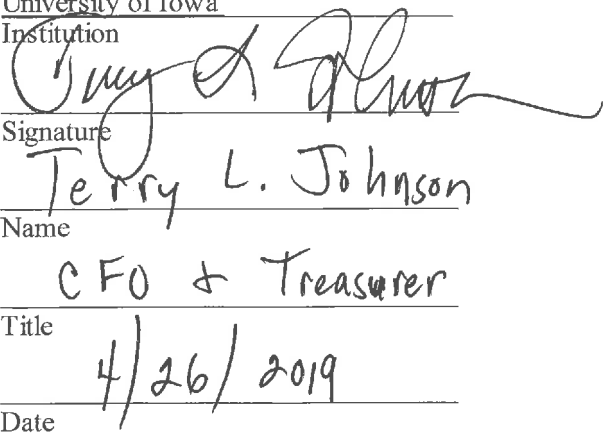 University of Iowa
Institution
Terry L Johnson
Signature
Terry L. Johnson
Name
CFO & Treasurer
Title
4/26/2019
Date